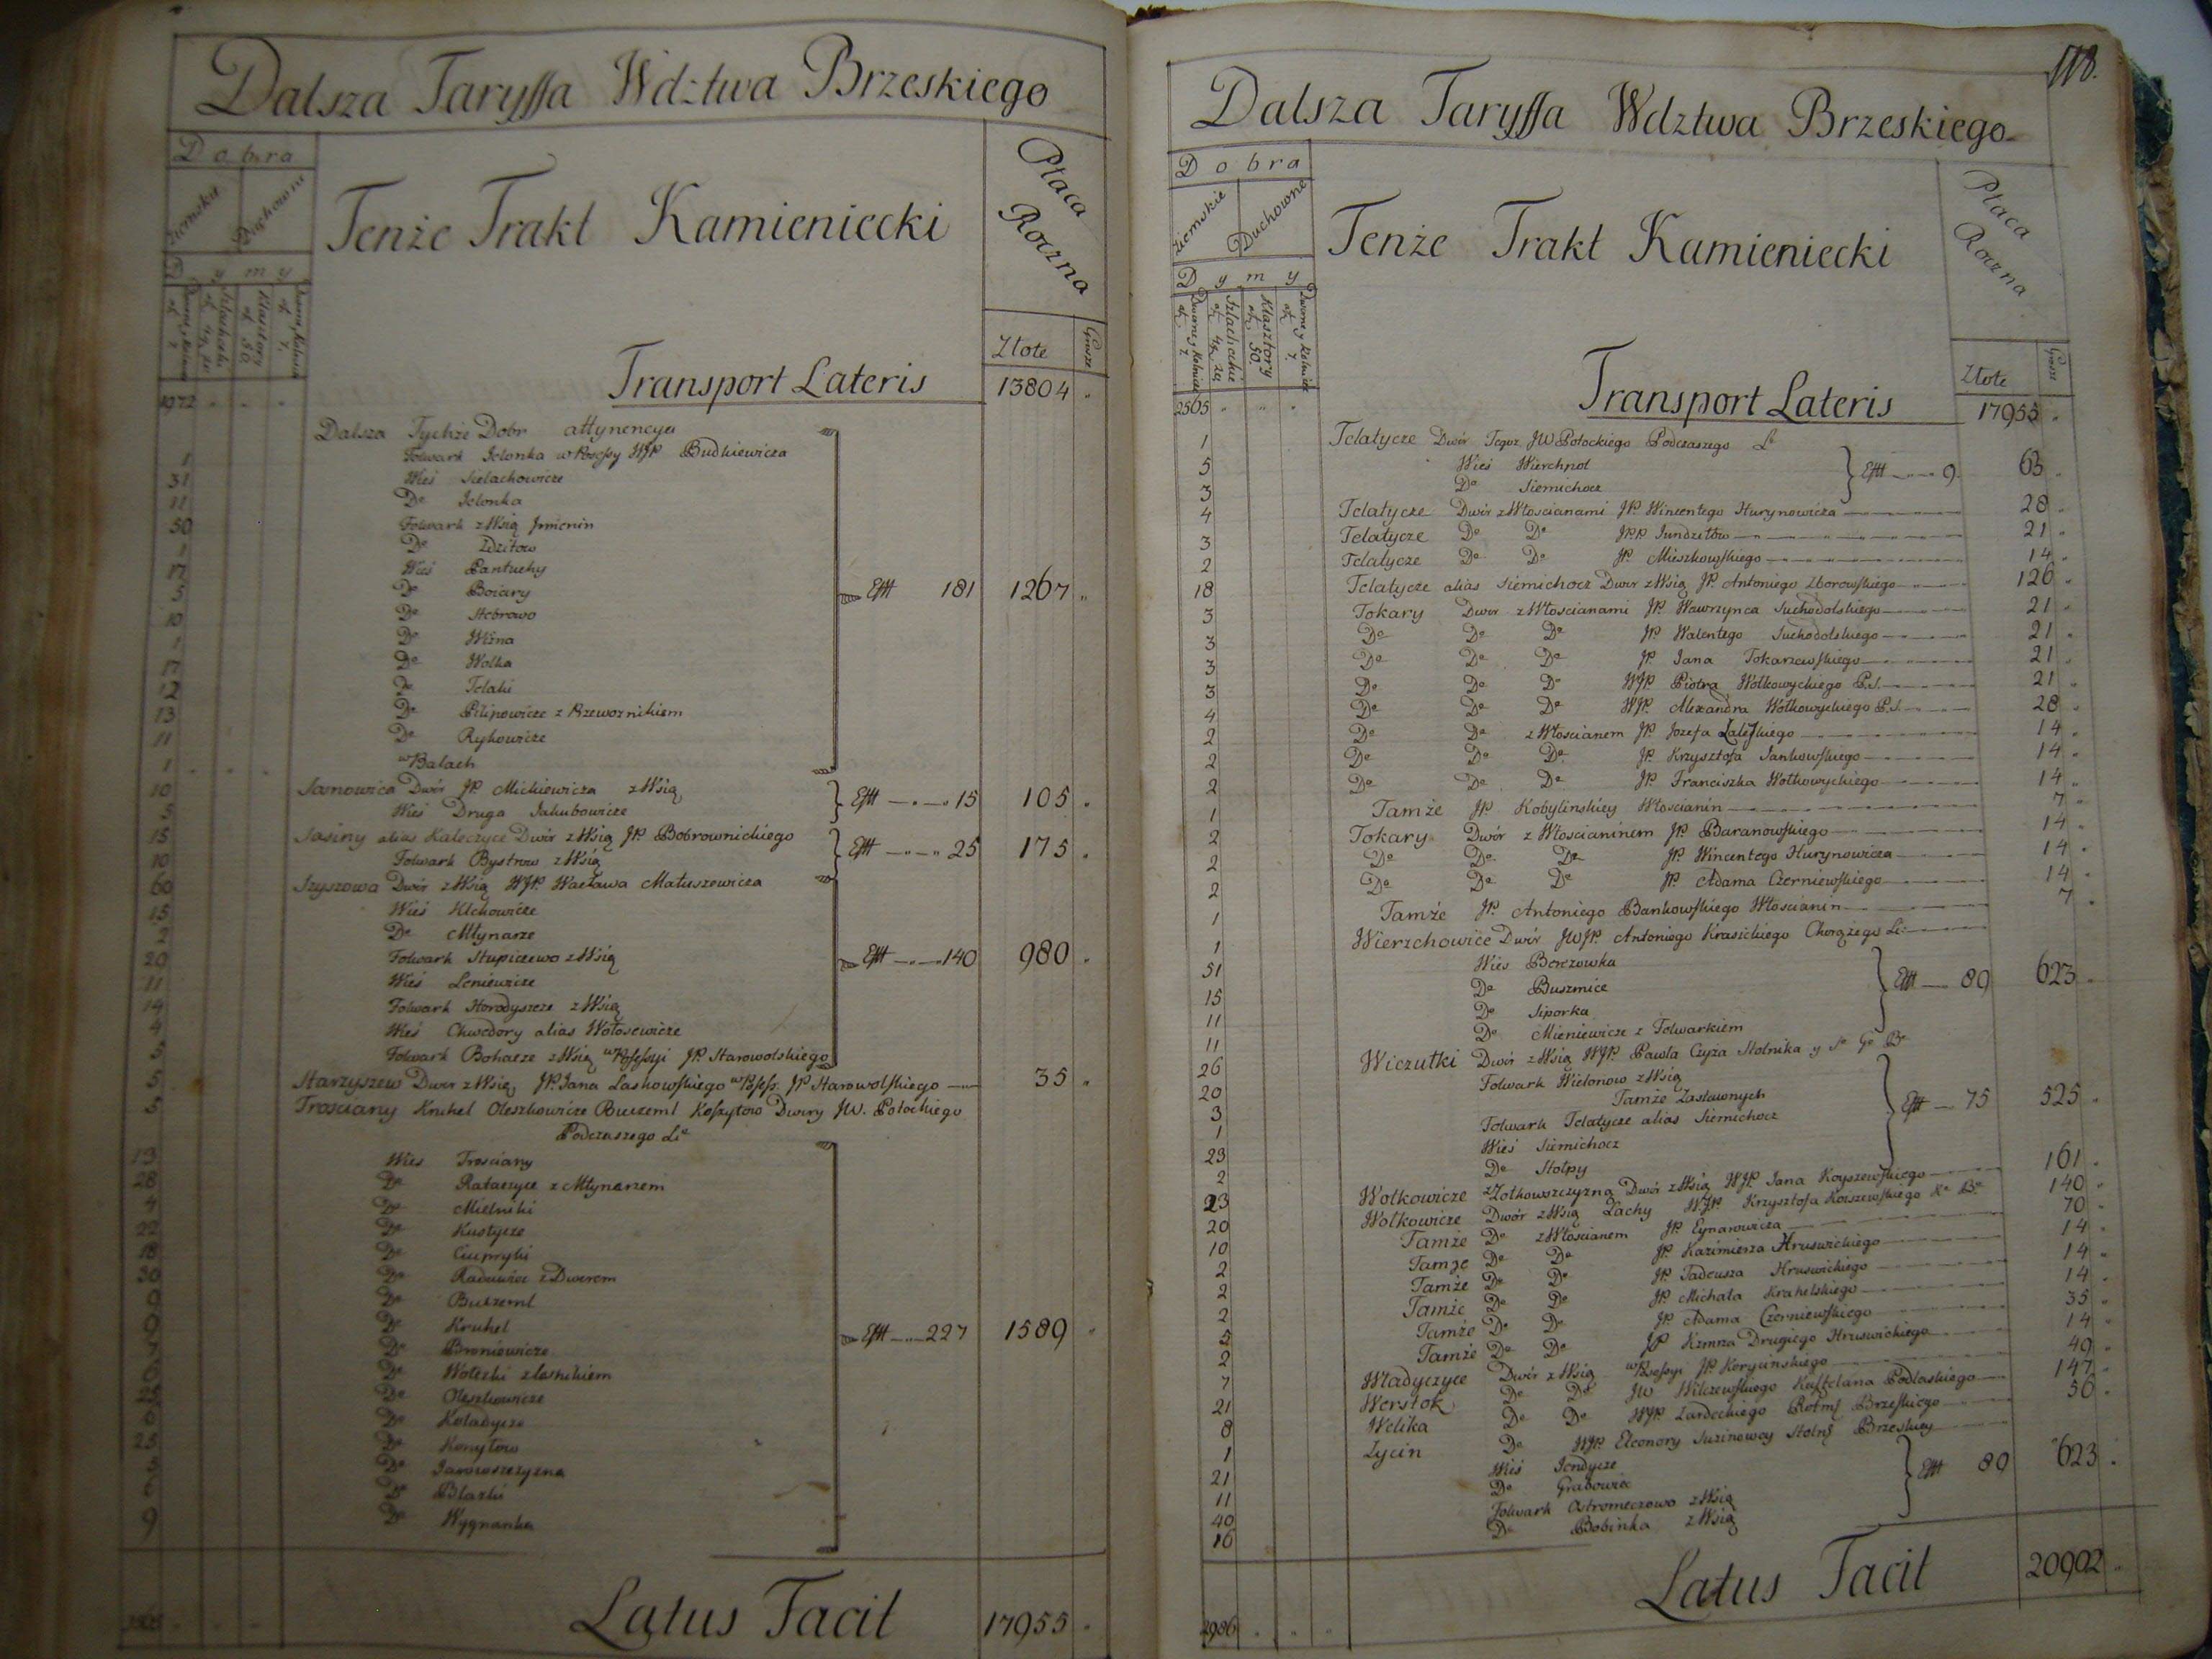 Dalsza Taryffa Wdztwa Brzeskiego
Dobra
Ziemskie Duchowne
Tenże Trakt Kamieniecki
Płaca Roczna
Dymy
Złote Grosze
Transport Lateris 13804
1972
Dalsza Tychże Dobr attynencya
Folwark Jelonka w Possessy WJP Budkiewicza
31 Wieś Sielachowicze
11 Do Jelonka
50 Folwark z Wsią Jrmenin
Do Zdzitow
Wieś Pantuchy
Do Boiary
Do Stebrowo
Do Wizna
Do Wolka
Do Telaki
Do Pilipowicze z Przewoznikiem
Do Rykowicze
w Balach
Efftt 181 1267
10 Jasnowica Dwór JP. Mickiewicza z Wsią
5 Wieś Druga Jakubowicze
Efftt 15 105
15 Jasiny alias Kaleczyce Dwór z Wsią JP. Bobrownickiego
10 Folwark Bystrow z Wsią
Efftt 25 175
60 Szyszowa Dwór z Wsią WJP. Wacława Matuszewicza
15 Wieś Klekowicze
2 Do Młynarze
20 Folwark Stupiczewo z Wsią
11 Wieś Leniewicze
14 Folwark Horodyszcze z Wsią
4 Wieś Chwedory alias Wołosewicze
Folwark Bohacze z Wsią w Possessyi JP. Starowolskiego
Efftt 140 980
5 Starzyszew Dwor z Wsią JP. Jana Laskowskiego w Posess. JP Starowolskiego 35
Trosciany Kruhel Oleszkowicze Buczeml Koszytow Dwory JW. Potockiego
Podczaszego Li
Wieś Trosciany
28 Do Rataczyce z Młynarzem
4 Do Mielniki
22 Do Kustycze
18 Do Ciupryki
30 Do Raduwicz z Dworem
Do Buczeml
Do Kruhel
Do Broniewicze
Do Woleżki z Lesnikiem
Do Oleszkowicze
Do Koladycze
25 Do Konytow
Do Jaroszczyzna
Do Blazki
9 Do Wygnanka
Efftt 227 1589
Latus Facit 17955
118.
Dalsza Taryffa Wdztwa Brzeskiego
Dobra
Ziemskie Duchowne
Tenże Trakt Kamieniecki
Płaca Roczna
Dymy
Dworne y Rolnicze á 7
Szlacheckie
Klasztory á 50
Dworne y Rolnicze á 7
Złote Grosze
2565 Transport Lateris 17955
1 Telatycze Dwór Tegoz JW Potockiego Podczaszego Li
5 Wieś Wierchpol
3 Do Siemichocz
Efftt 9 63
4 Telatycze Dwór z Włoscianami JP. Wincentego Hurynowicza 28
3 Telatycze Do Do JPP Jundziłłow 21
2 Telatycze Do Do JP. Mieszkowskiego 14
18 Telatycze alias Siemichocz Dwor z Wsią JP. Antoniego Zborowskiego 126
3 Tokary Dwor z Włoscianami JP. Wawrzynca Suchodolskiego 21
3 Do Do Do JP. Walentego Suchodolskiego 21
3 Do Do Do JP Jana Tokarzewskiego 21
3 Do Do Do WJP. Piotra Wołkowyckiego P.S. 21
4 Do Do Do WJP. Alexandra Wołkowyckiego P.S. 28
2 Do Do z Włoscianem JP. Jozefa Zaleskiego 14
2 Do Do Do JP. Krzysztofa Jankowskiego 14
2 Do Do Do JP. Franciszka Wołkowyckiego 14
1 Tamże JP. Kobylinskiey Włoscianin 7
2 Tokary Dwór z Włoscianinem JP. Baranowskiego 14
2 Do Do Do JP. Wincentego Hurynowicza 14
2 Do Do Do JP. Adama Czerniewskiego 14
1 Tamże JP. Antoniego Bankowskiego Włoscianin 7
1 Wierzchowice Dwór JWJP. Antoniego Krasickiego Chorążego Li
51 Wieś Berezowka
15 Do Buszmice
11 Do Siporka
11 Do Mieniewicze z Folwarkiem
Efftt 89 623
26 Wiczułki Dwór z Wsią WJP. Pawła Czyża Stolnika
20 Folwark Wielonow z Wsią
3 Tamże Zastawnych
1 Folwark Telatycze alias Siemichocz
23 Wieś Siemichocz
2 Do Stołpy
Efftt 75 525
23 Wołkowicze Zołkowszczyzna Dwór z Wsią WJP. Jana Koyszewskiego 161
20 Wołkowicze Dwór z Wsią Lachy WJP. Krzysztofa Koiszewskiego 140
10 Tamże Do z Włoscianem JP. Eynarowicza 70
2 Tamże Do Do JP. Kazimierza Hruswickiego 14
2 Tamże Do Do JP. Tadeusza Hruswickiego 14
2 Tamże Do Do JP. Michała Krahelskiego 14
5 Tamże Do Do JP. Adama Czerniewskiego 35
2 Tamże Do Do JP Kzmrza Drugiego Hruswickiego 14
7 Władyczyce Dwór z Wsią w Possessyi JP. Korycinskiego 49
21 Werstok Do Do JW Wilczewskiego Kasztelana Podlaskiego 147
8 Welika Do Do WJP. Zardeckiego Rotm. Brzeskiego 56
1 Zycin Do WJP. Eleonory Suzinowey Stoln. Brzeskiey
21 Wieś Jendycze
11 Do Grabowiec
40 Folwark Ostromeczowo z Wsią
16 Do Bobinka z Wsią
Efftt 89 623
2986 Latus Facit 20902